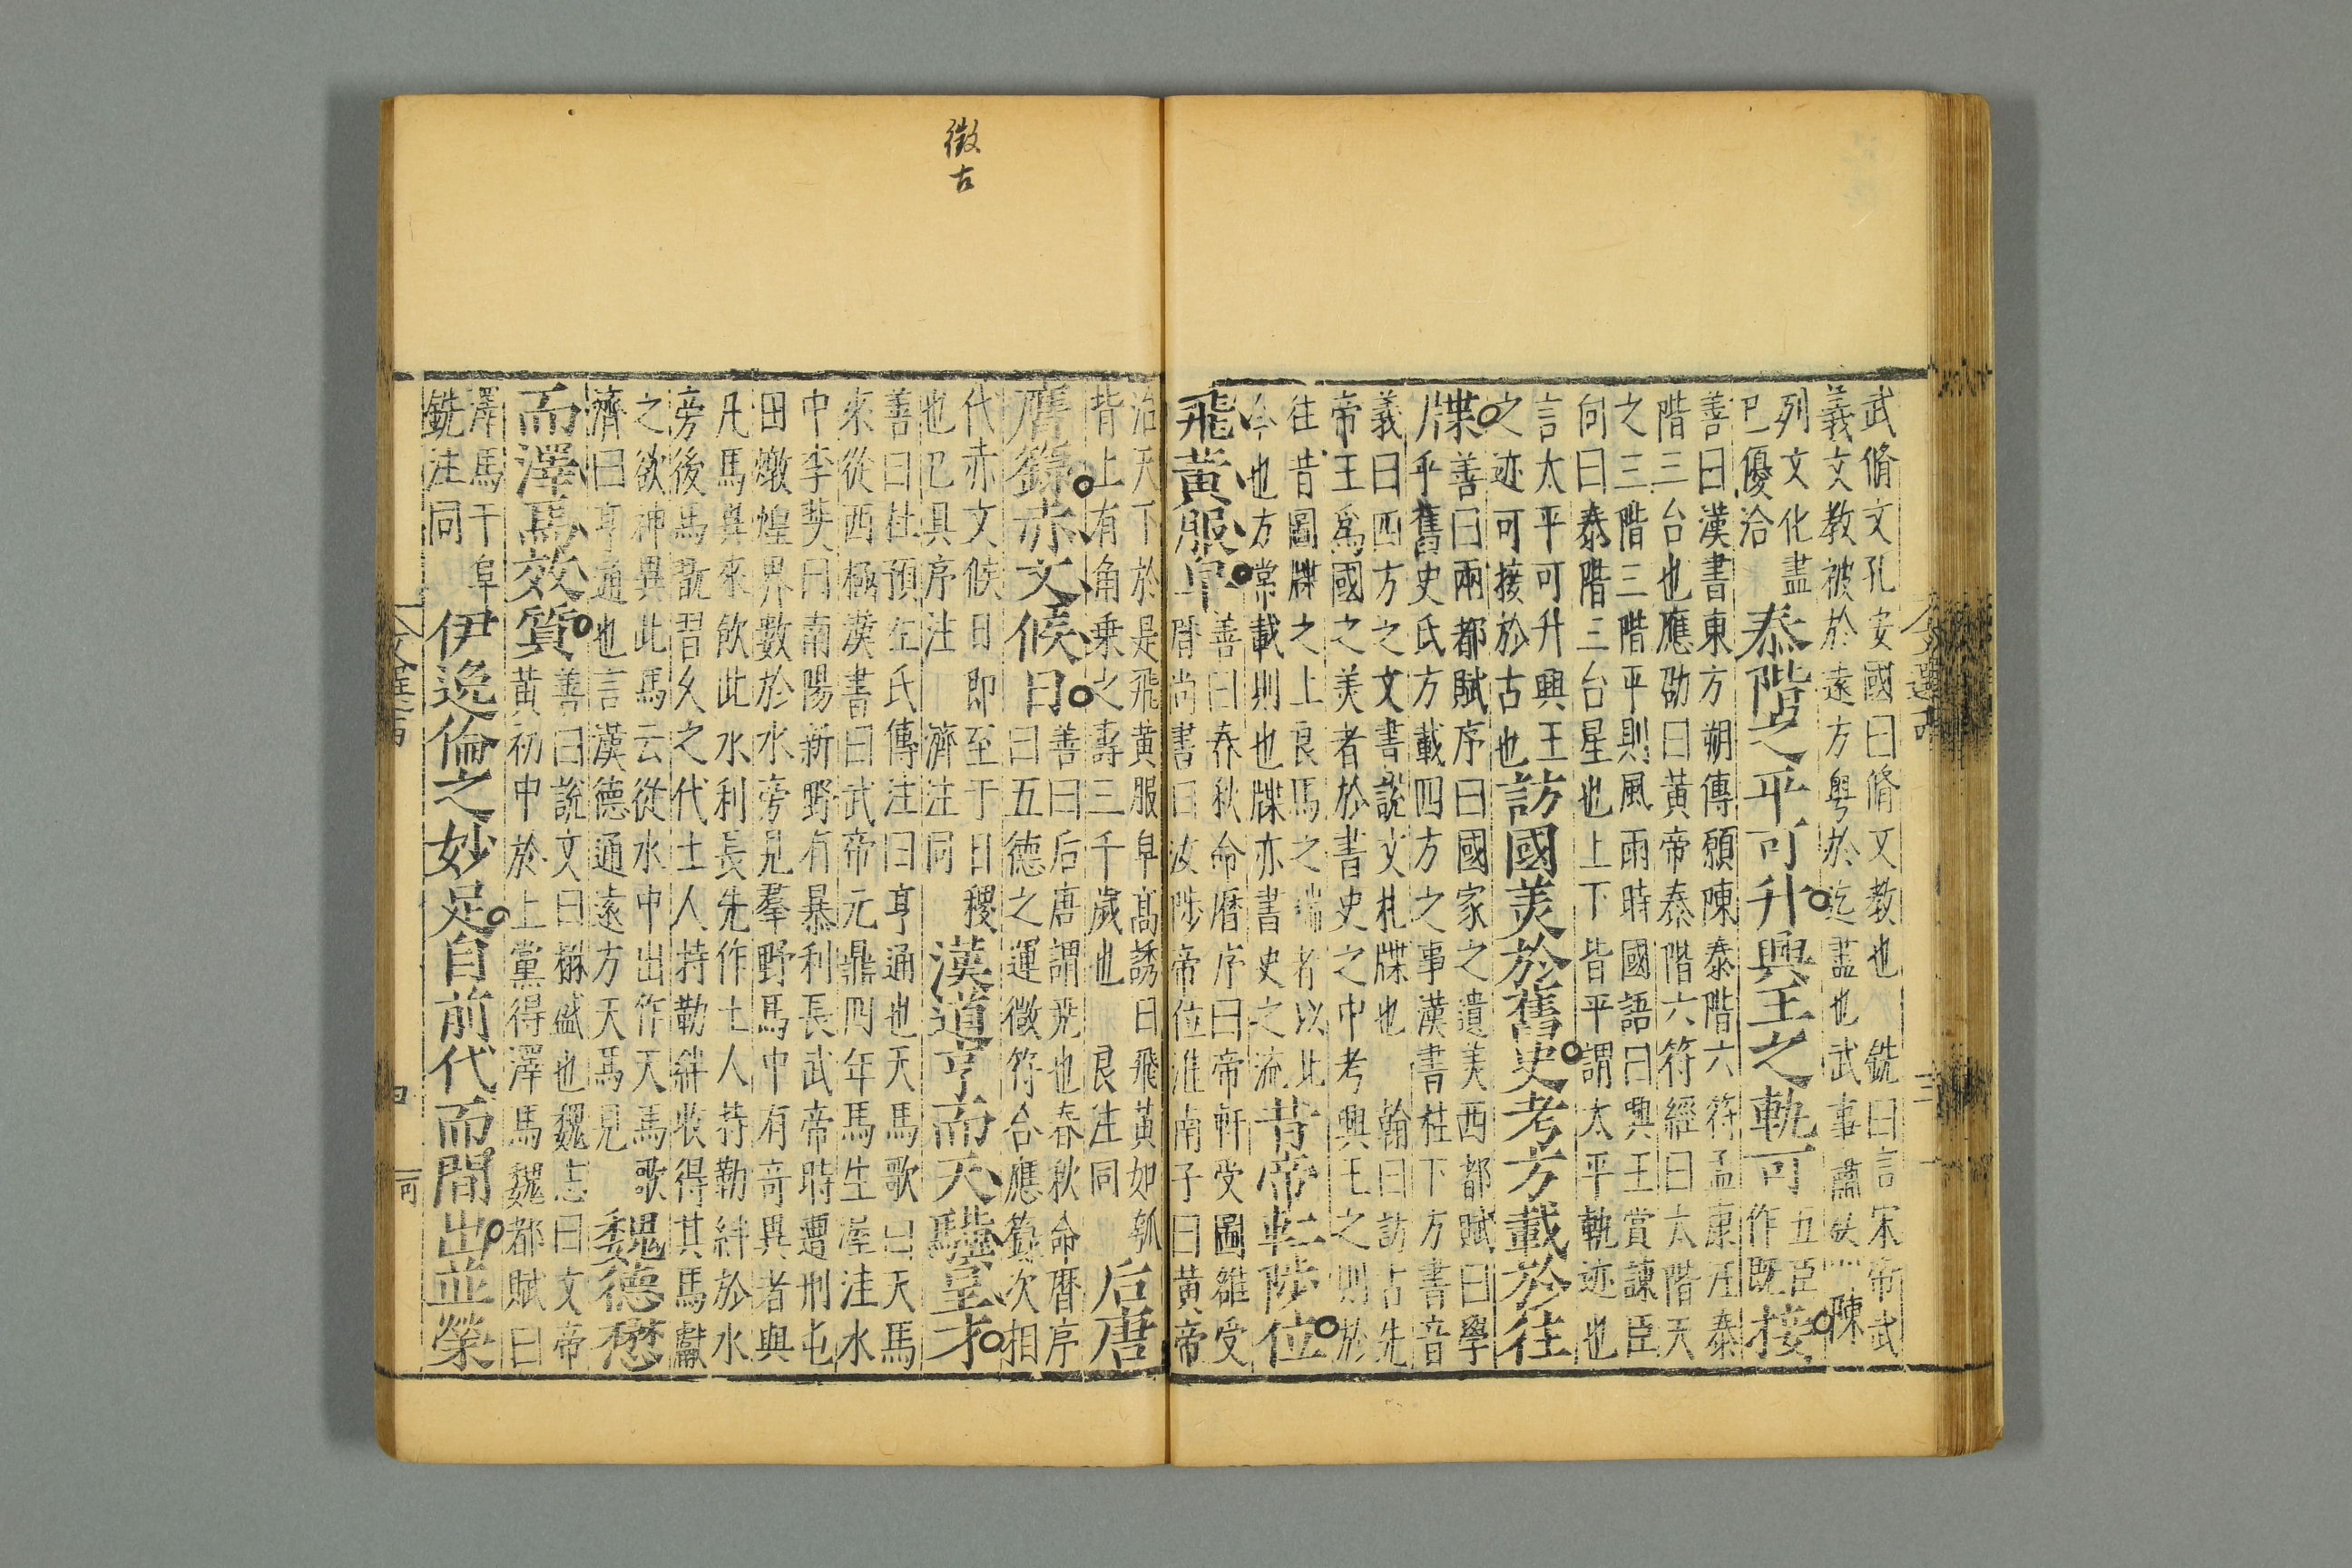 武脩文孔安國曰脩文教也　銑曰言宋帝武
義文教被於遠方粤於迄盡也武事肅矣　陳
列文化盡
已優洽
泰階之平可升興王之軌可
五臣
作既
接
善曰漢書東方朔傳願陳泰階六符孟康注泰
階三台也應劭曰黄帝泰階六符經曰太階天
之三階三階平則風雨時國語曰興王賞諫臣
向曰泰階三台星也上下皆平謂太平軌迹也
言太平可升興王
之迹可接於古也
訪國美於舊史考方載於往
牒
善曰兩都賦序曰國家之遺美西都賦曰學
乎舊史氏方載四方之事漢書柱下方書音
義曰四方之文書説文札牒也　翰曰訪古先
帝王爲國之美者於書史之中考興王之則於
往昔圖牒之上良馬之端者以此
今也方常載則也牒亦書史之流
昔帝軒陟位
飛黄服皁
善曰春秋命曆序曰帝軒受圖雒受
曆尚書曰汝陟帝位淮南子曰黄帝
治天下於是飛黄服皁高誘曰飛黄如狐
背上有角乗之壽三千歲也　良注同
后唐
膺籙赤文候日
善曰后唐謂堯也春秋命曆序
曰五德之運徵符合應籙次相
代赤文候日即至于日稷
也已具序注　濟注同
漢道亨而天驥呈才
善曰杜預左氏傳注曰亨通也天馬歌曰天馬
來從西極漢書曰武帝元鼎四年馬生渥洼水
中李斐曰南陽新野有暴利長武帝時遭刑屯
田燉煌界數於水旁見羣野馬中有奇異者與
凡馬異來飲此水利長先作土人持勒絆於水
旁後馬翫習久之代土人持勒絆收得其馬獻
之欲神異此馬云從水中出作天馬歌
濟曰亨通也言漢德通遠方天馬見
魏德懋
而澤馬效質
善曰説文曰楙盛也魏志曰文帝
黄初中於上黨得澤馬魏都賦曰
澤馬亍阜
銑注同
伊逸倫之妙足自前代而間出並榮
徵古